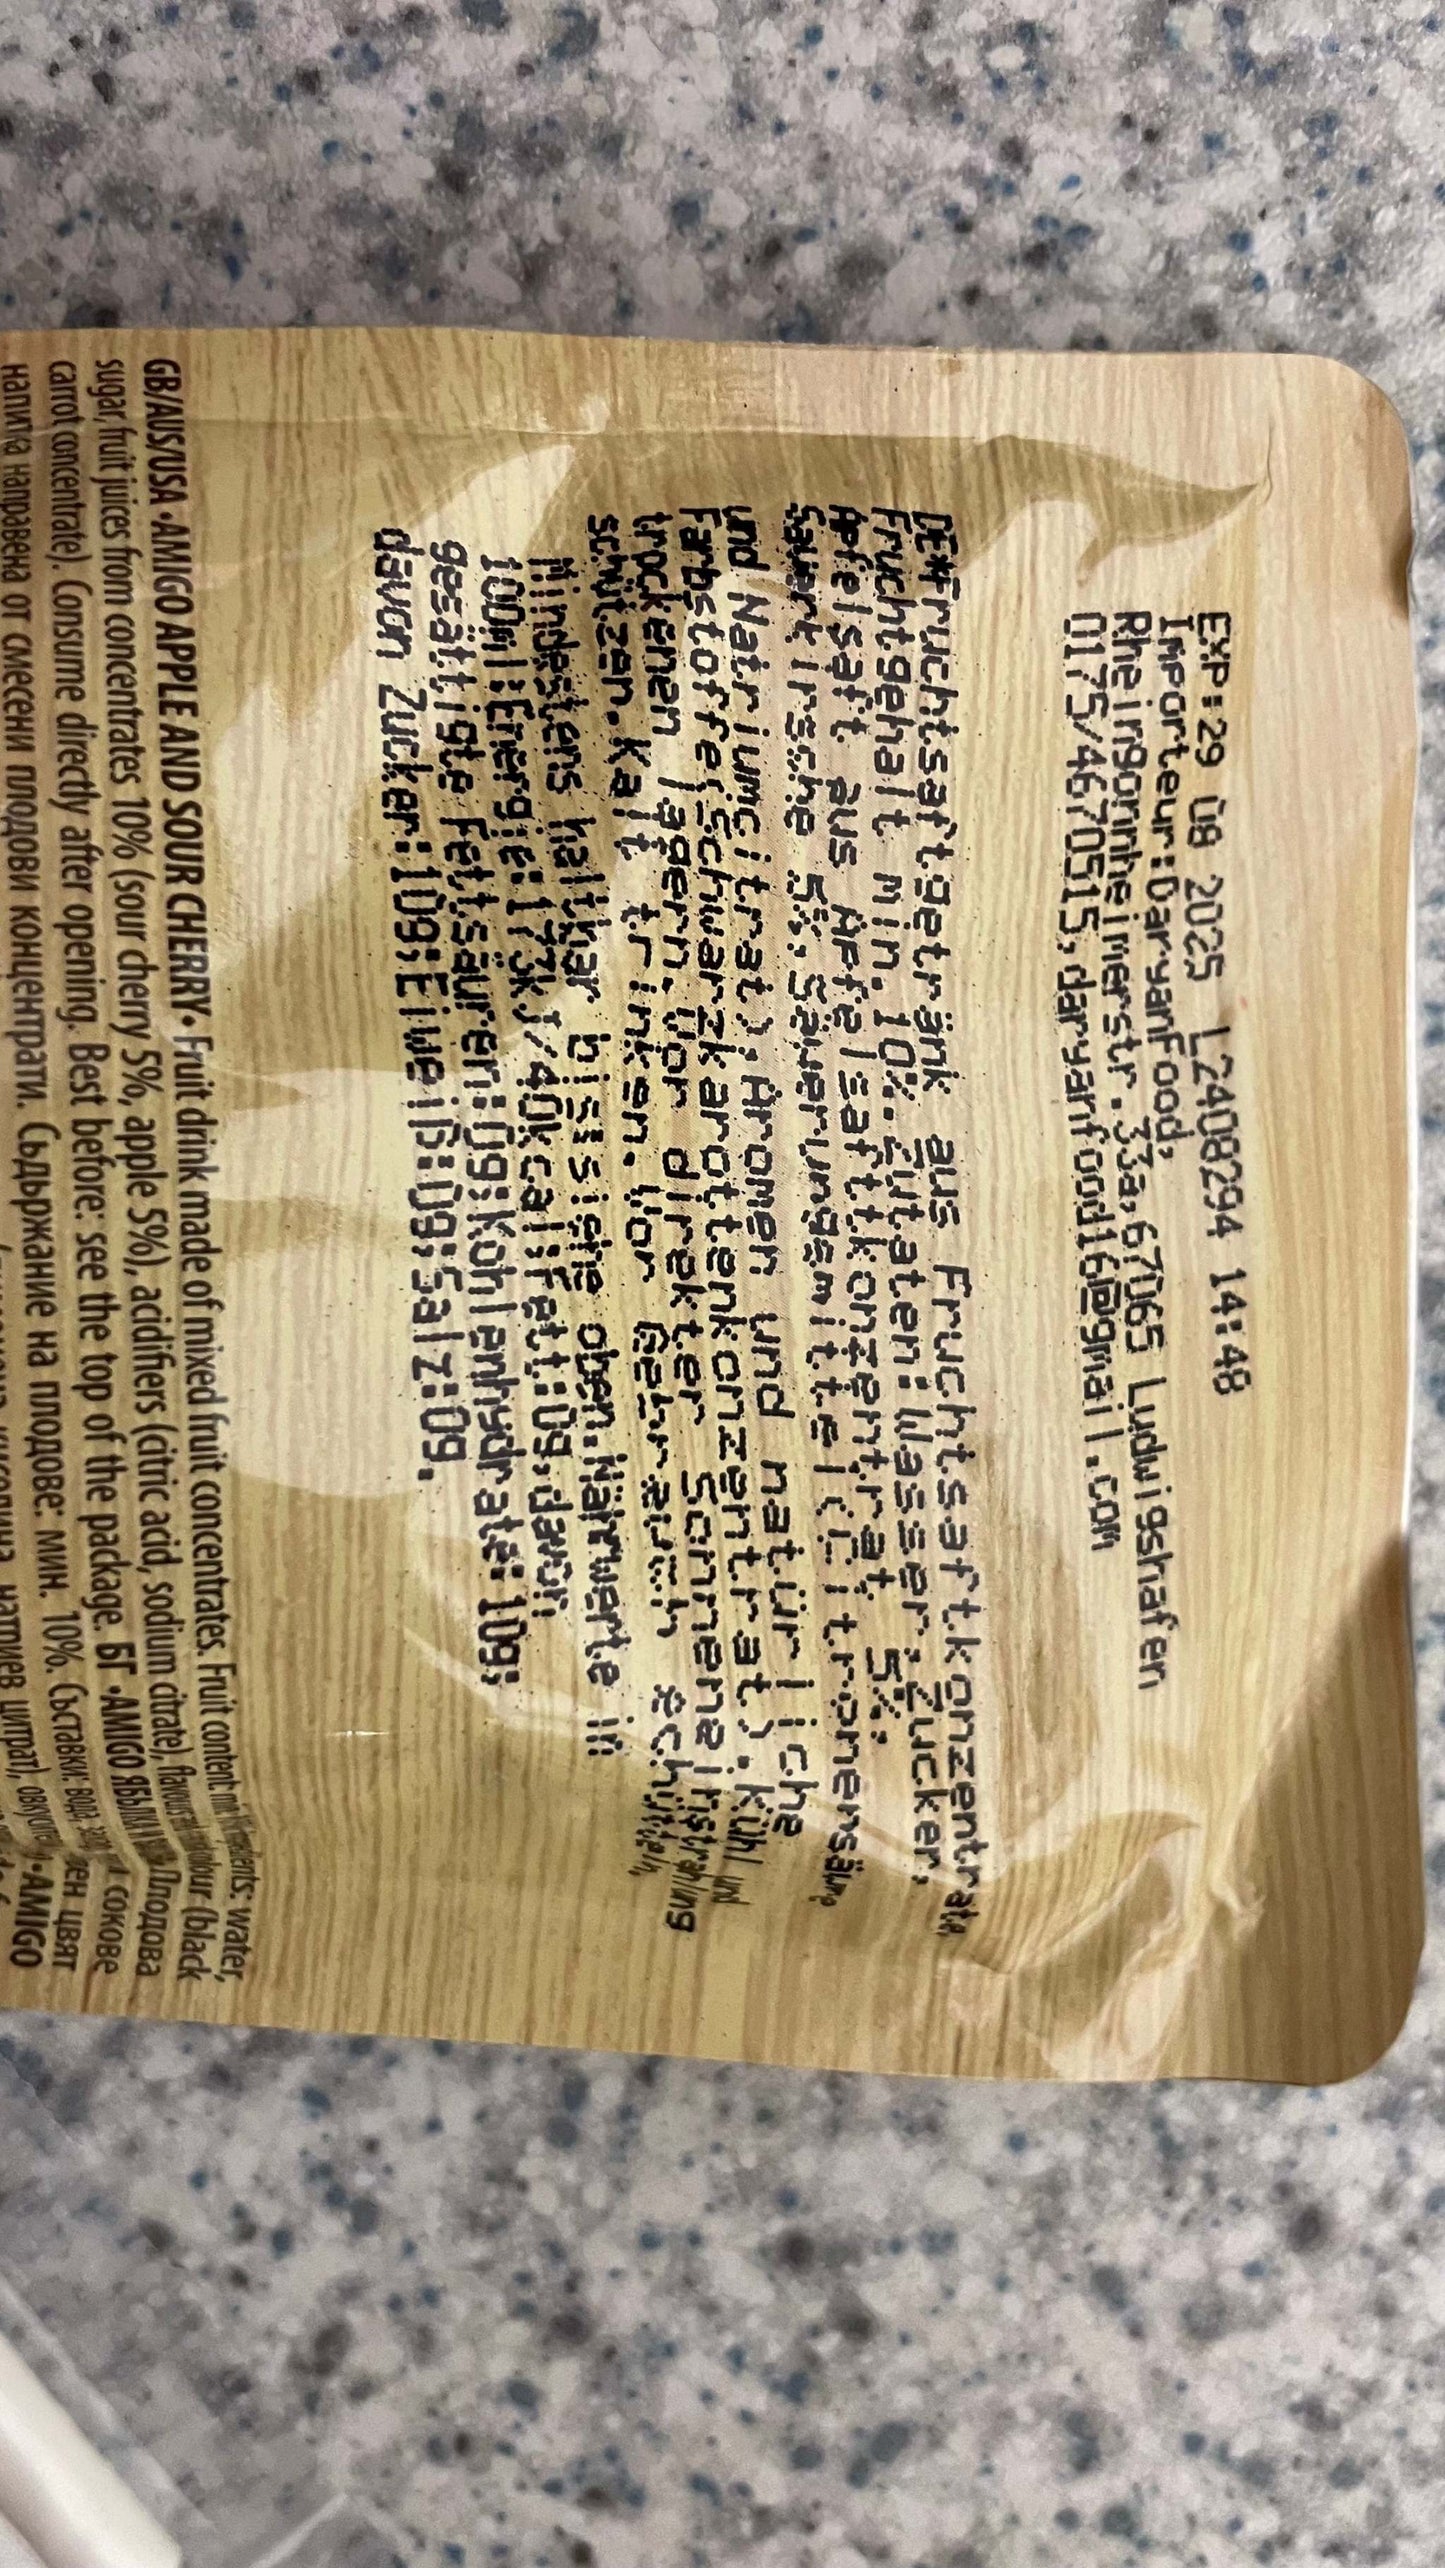 EXP:29 08 2025 L2408294 14:48
Importeur:DaryanFood,
Rheingönnheimerstr.33a,67065 Ludwigshafen
0175/4670515,daryanfood16@gmail.com
DE*Fruchtsaftgetränk aus Fruchtsaftkonzentrate,
Fruchtgehalt min.10%.Zutaten:Wasser;Zucker,
Apfelsaft aus Apfelsaftkonzentrat 5%;
Sauerkirsche 5%.Säuerungsmittel(Citronensäure
und Natriumcitrat).Aromen und natürliche
Farbstoffe(Schwarzkarottenkonzentrat).Kühl und
trockenen lagern.Vor direkter Sonneneinstrahlung
schützen.Kalt trinken.Vor Gebrauch schütteln,
Mindestens haltbar bis:siehe oben.Nährwerte in
100ml:Energie:173kJ/40kcal:Fett:0g,davon
gesättigte Fettsäuren:0g:Kohlenhydrate:10g;
davon Zucker:10g:Eiweiß:0g:Salz:0g.
GB/AUS/USA •AMIGO APPLE AND SOUR CHERRY• Fruit drink made of mixed fruit concentrates. Fruit content water,
sugar, fruit juices from concentrates 10% (sour cherry 5%, apple 5%), acidifiers (citric acid, sodium citrate), flavours (black
carrot concentrate). Consume directly after opening. Best before: see the top of the package. БГ •AMIGO ЯБЪЛКА Плодова
напитка направена от смесени плодови концентрати. Съдържание на плодове: мин. 10%. Съставки: вода, сокове
натриев цитрат), цвят
•AMIGO